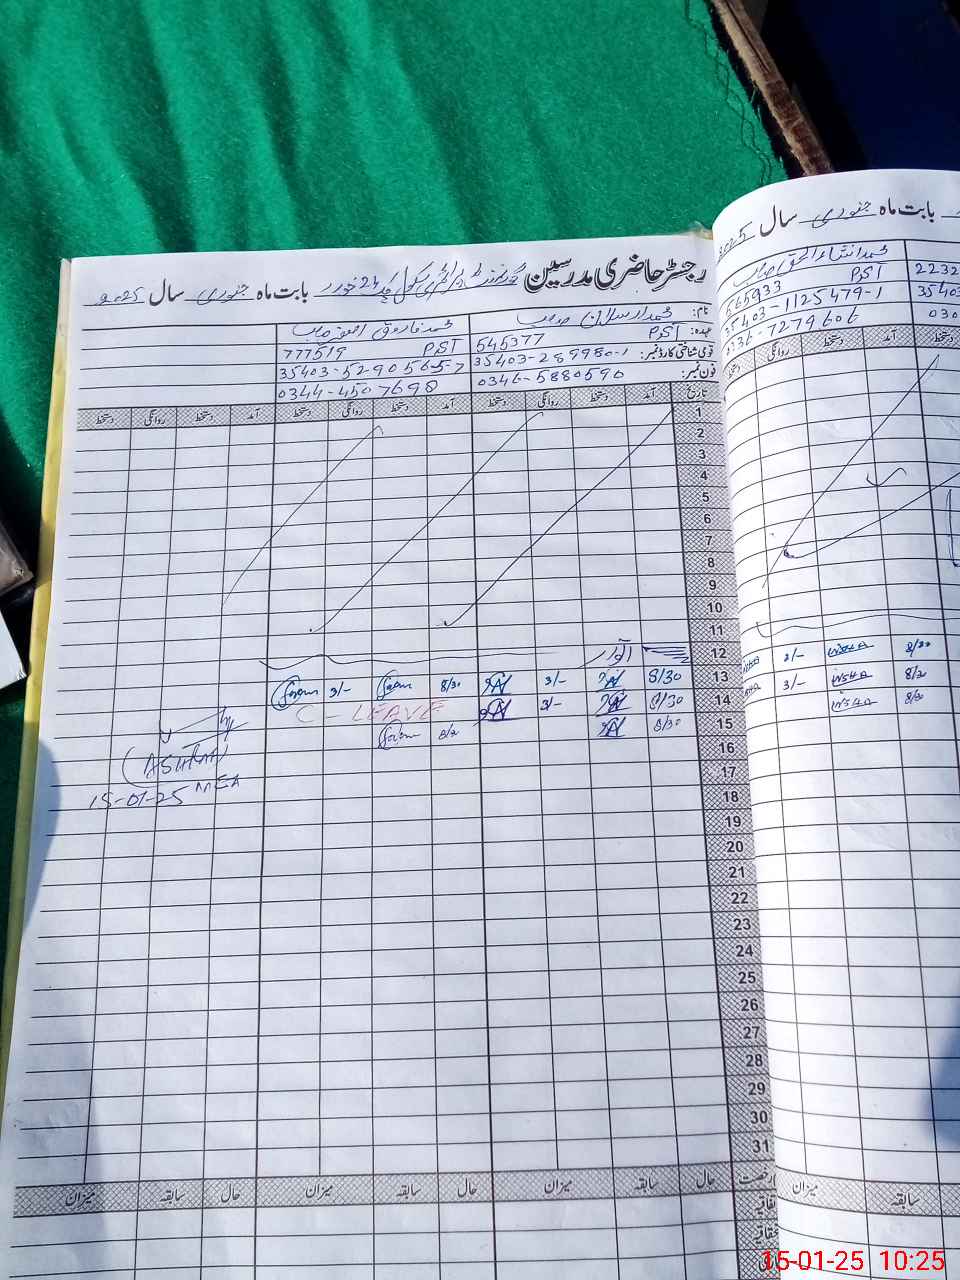 رجسٹر حاضری مدرسین گورنمنٹ پرائمری سکول چک 24 خورد بابت ماہ جنوری سال 2025
نام: محمد ارسلان صاحب محمد فاروق اصغر صاحب
عہدہ: PST 545377 PST 777519
قومی شناختی کارڈ نمبر: 35403-2899980-1 35403-5290565-7
فون نمبر: 0346-5880590 0344-4507698
تاریخ آمد دستخط روانگی دستخط آمد دستخط روانگی دستخط آمد دستخط روانگی دستخط
1
2
3
4
5
6
7
8
9
10
11
12 اتوار
13 8/30 3/- 8/30 3/-
14 8/30 3/- C-LEAVE
15 8/30 8/30
16
17
18
19
20
21
22
23
24
25
26
27
28
29
30
31
(ASHRAF)
MEA
15-01-25
رخصت حال سابقہ میزان حال سابقہ میزان حال سابقہ میزان
اتفاقیہ
بابت ماہ جنوری سال 2025
محمد انشاءالحق صاحب
PST 565933 2232
35403-1125479-1 35403
0336-7279606 030
روانگی دستخط آمد
3/- INSHA 8/30
3/- INSHA 8/30
INSHA 8/30
میزان سابقہ
15-01-25 10:25